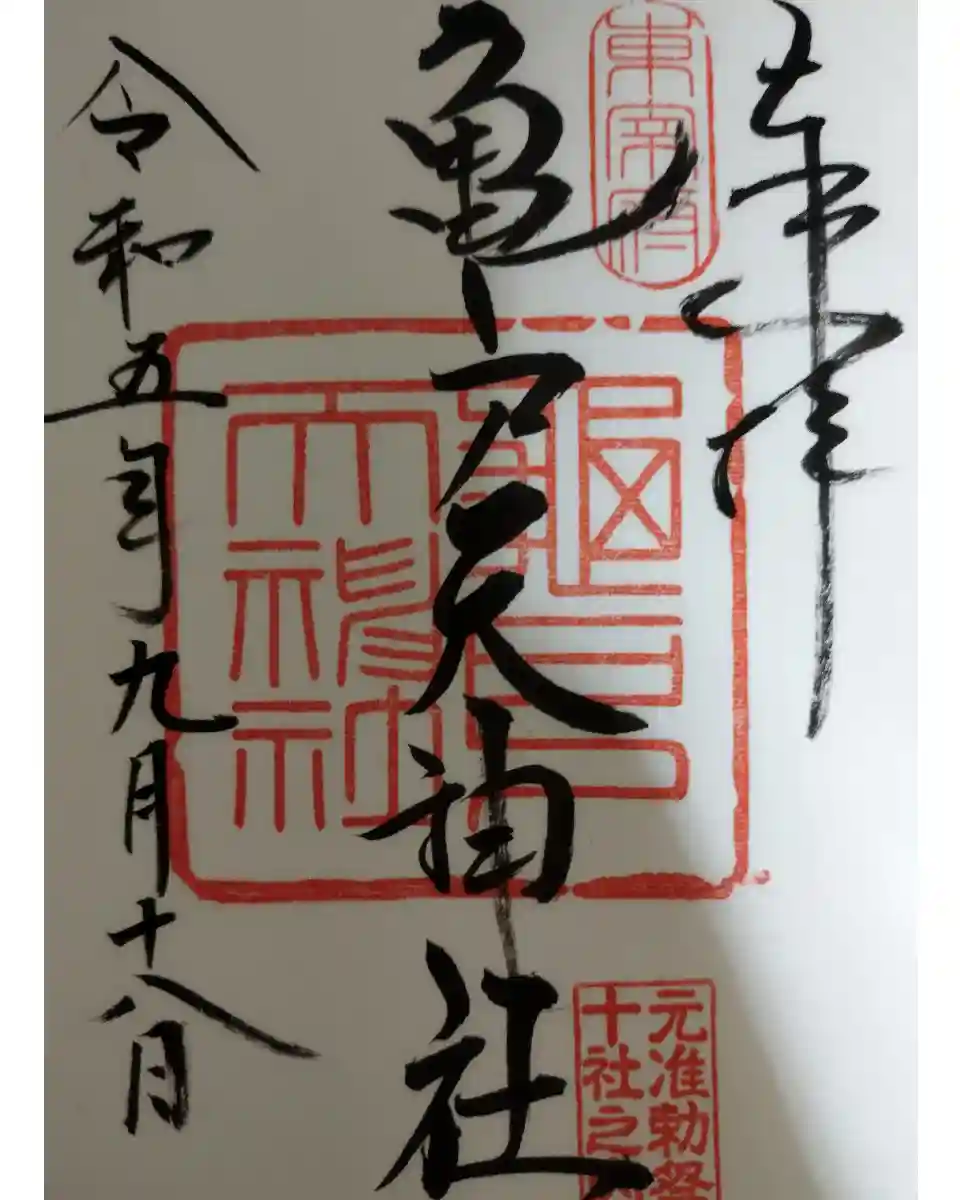 奉拝
東宰府
亀戸天神社
亀戸天神社
元准勅祭
十社之
令和五年九月十八日